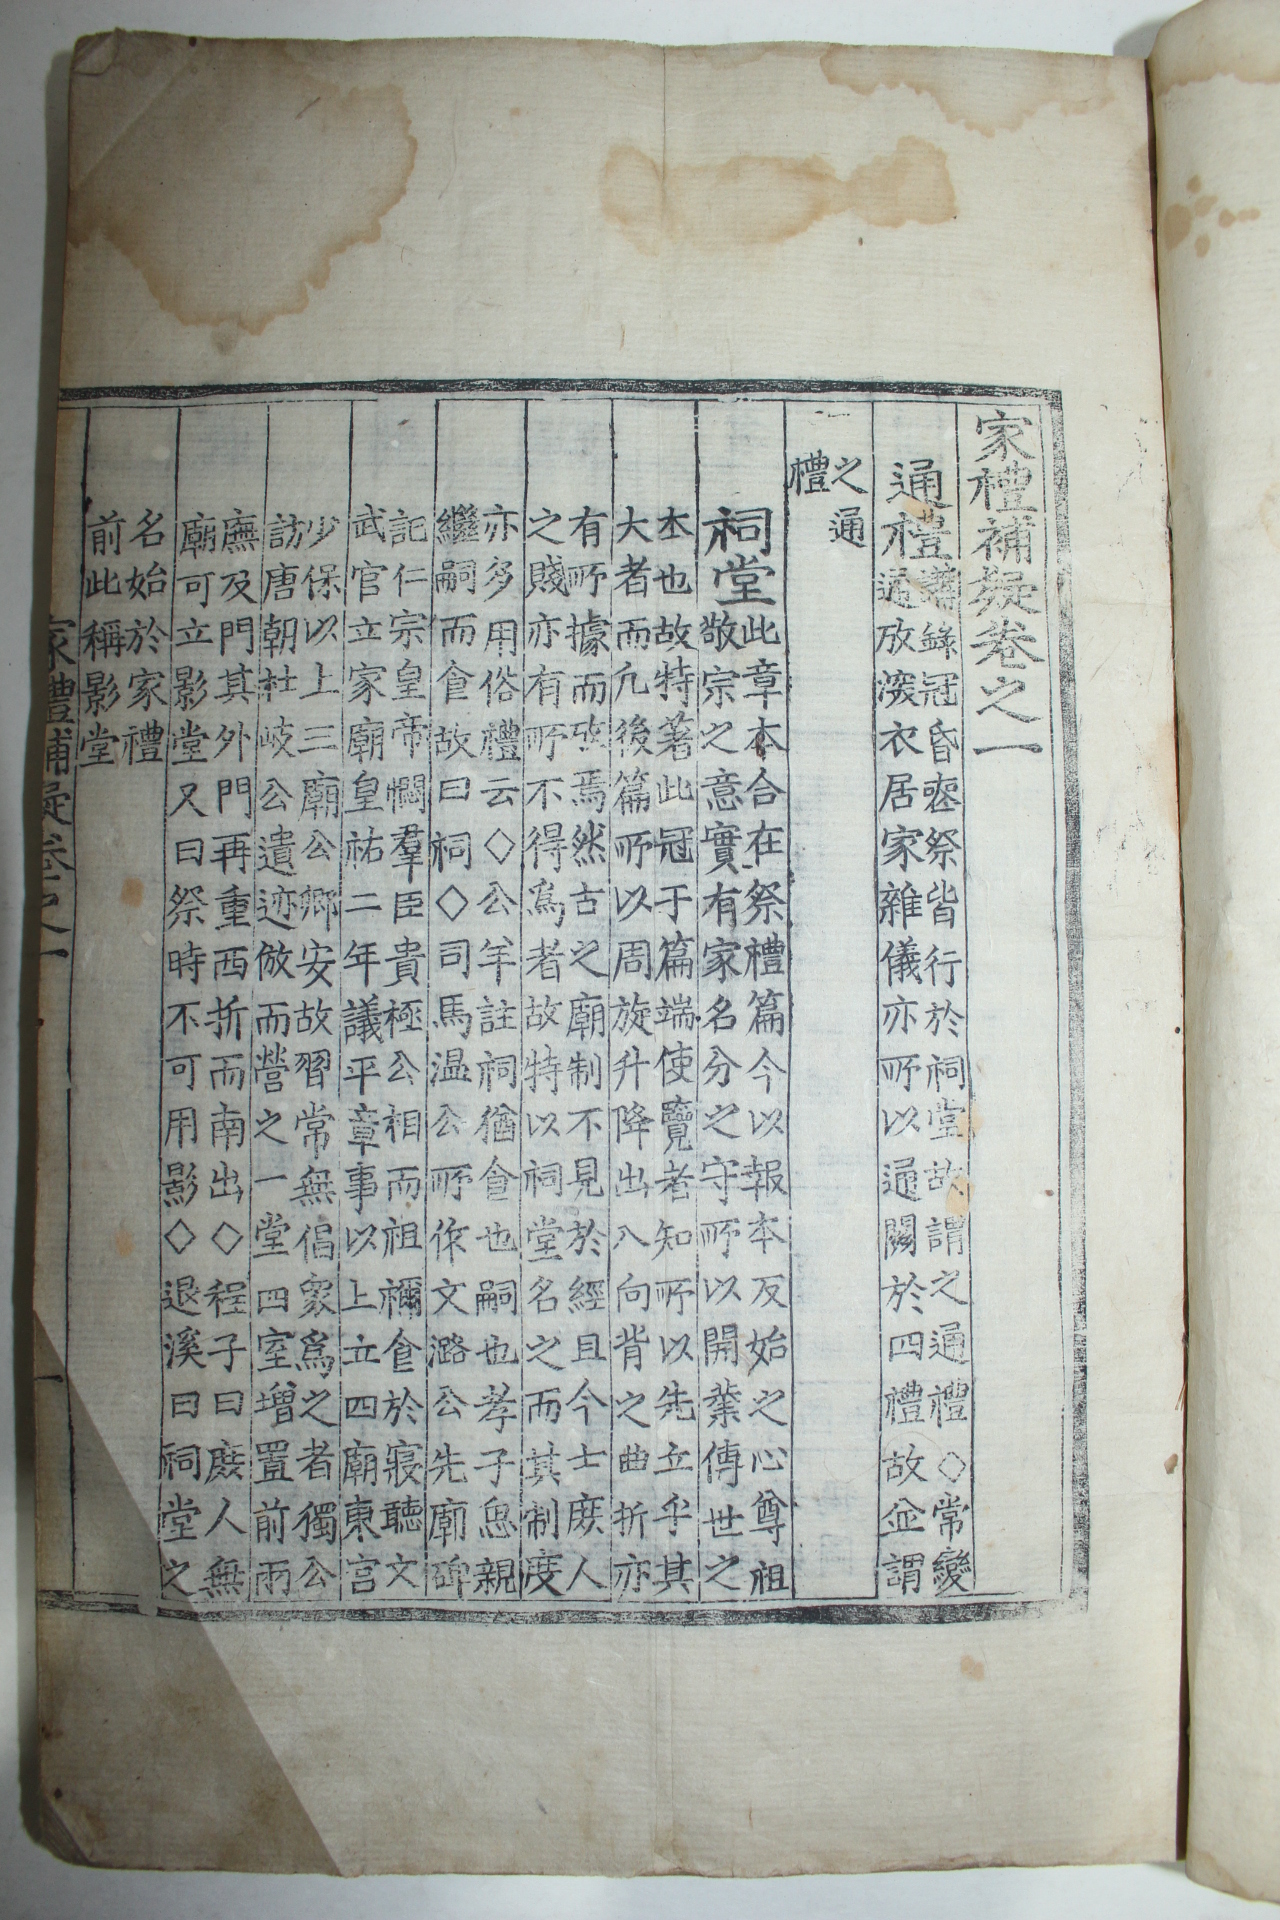 家禮補疑卷之一
通禮
講錄冠昏喪祭皆行於祠堂故謂之通禮◇常變
通攷深衣居家雜儀亦所以通關於四禮故並謂
之通
禮
祠堂
此章本合在祭禮篇今以報本反始之心尊祖
敬宗之意實有家名分之守所以開業傳世之
本也故特著此冠于篇端使覽者知所以先立乎其
大者而凡後篇所以周旋升降出入向背之曲折亦
有所據而攷焉然古之廟制不見於經且今士庶人
之賤亦有所不得爲者故特以祠堂名之而其制度
亦多用俗禮云◇公羊註祠猶食也嗣也孝子思親
繼嗣而食故曰祠◇司馬溫公所作文潞公先廟碑
記仁宗皇帝憫羣臣貴極公相而祖禰食於寢聽文
武官立家廟皇祐二年議平章事以上立四廟東宮
少保以上三廟公卿安故習常無倡衆爲之者獨公
訪唐朝杜岐公遺迹倣而營之一堂四室增置前兩
廡及門其外門再重西折而南出◇程子曰庶人無
廟可立影堂又曰祭時不可用影◇退溪曰祠堂之
名始於家禮
前此稱影堂
家禮補疑卷之一
一